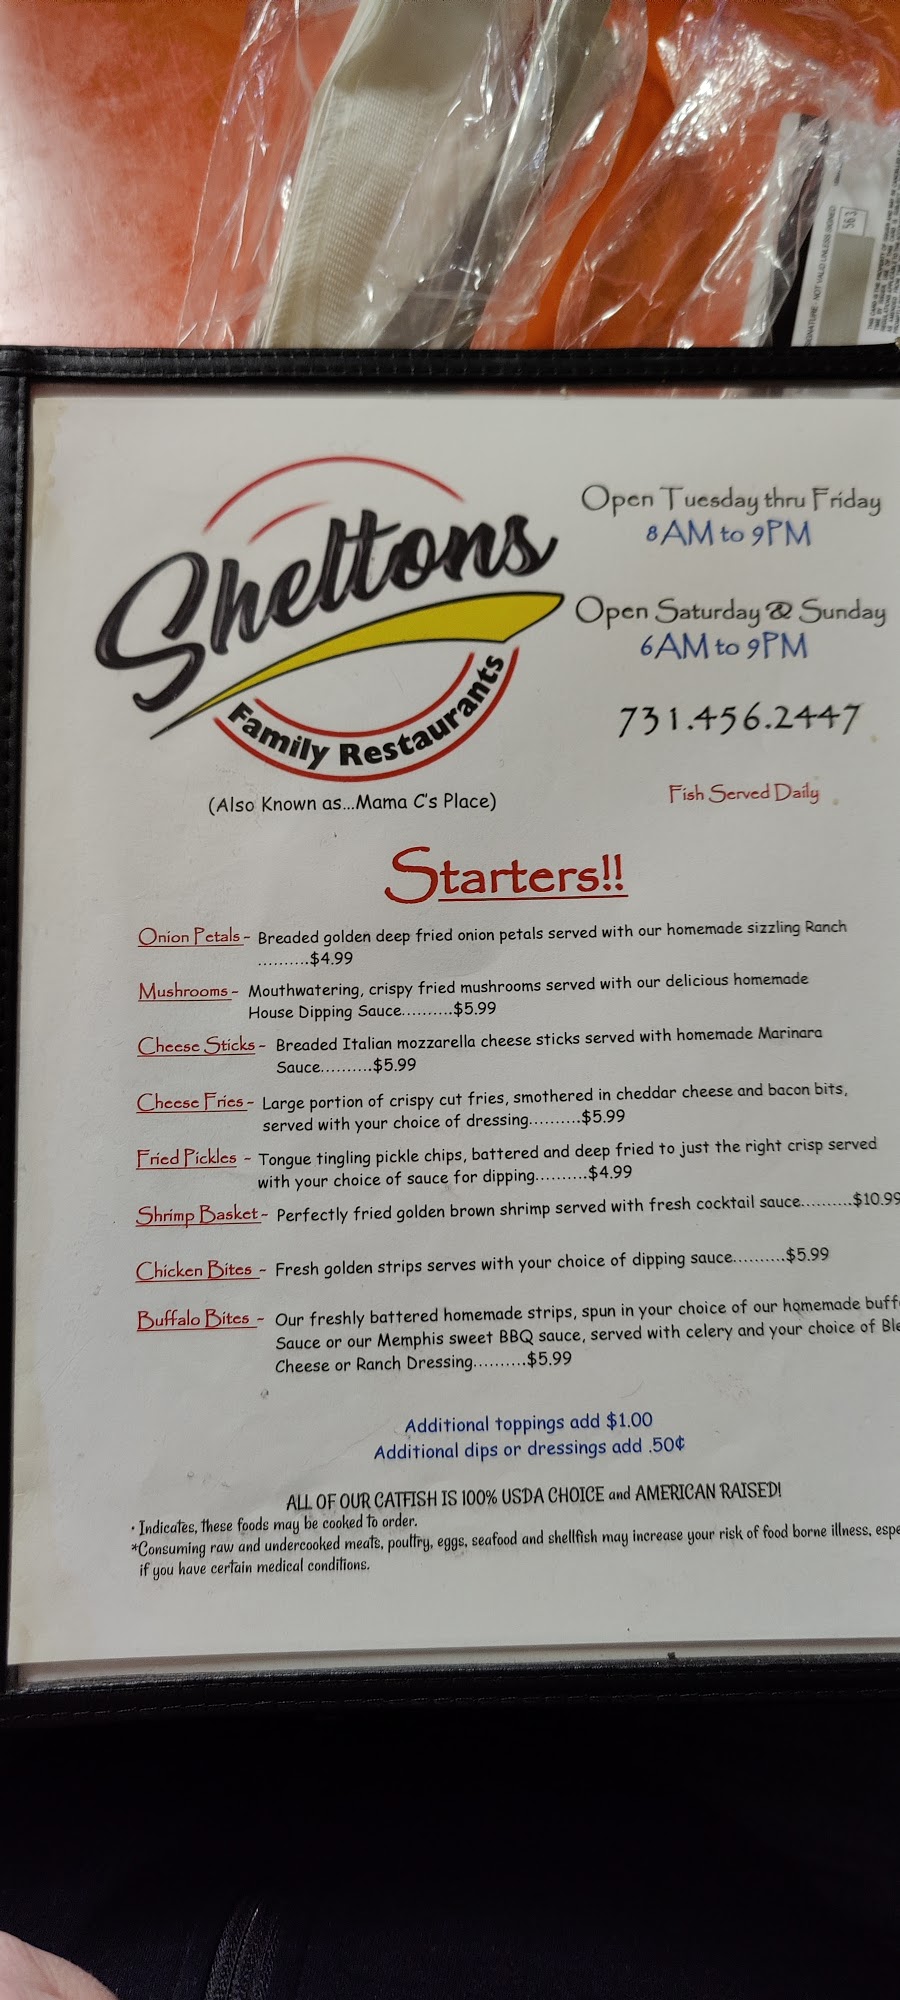 SIGNATURE - NOT VALID UNLESS SIGNED
563
Sheltons
Family Restaurants
(Also Known as...Mama C's Place)
Open Tuesday thru Friday
8AM to 9PM
Open Saturday & Sunday
6AM to 9PM
731.456.2447
Fish Served Daily
Starters!!
Onion Petals - Breaded golden deep fried onion petals served with our homemade sizzling Ranch
..........$4.99
Mushrooms - Mouthwatering, crispy fried mushrooms served with our delicious homemade
House Dipping Sauce..........$5.99
Cheese Sticks - Breaded Italian mozzarella cheese sticks served with homemade Marinara
Sauce..........$5.99
Cheese Fries - Large portion of crispy cut fries, smothered in cheddar cheese and bacon bits,
served with your choice of dressing..........$5.99
Fried Pickles - Tongue tingling pickle chips, battered and deep fried to just the right crisp served
with your choice of sauce for dipping..........$4.99
Shrimp Basket - Perfectly fried golden brown shrimp served with fresh cocktail sauce..........$10.99
Chicken Bites - Fresh golden strips serves with your choice of dipping sauce..........$5.99
Buffalo Bites - Our freshly battered homemade strips, spun in your choice of our homemade buff
Sauce or our Memphis sweet BBQ sauce, served with celery and your choice of Ble
Cheese or Ranch Dressing..........$5.99
Additional toppings add $1.00
Additional dips or dressings add .50¢
ALL OF OUR CATFISH IS 100% USDA CHOICE and AMERICAN RAISED!
• Indicates, these foods may be cooked to order.
*Consuming raw and undercooked meats, poultry, eggs, seafood and shellfish may increase your risk of food borne illness, espe
if you have certain medical conditions.